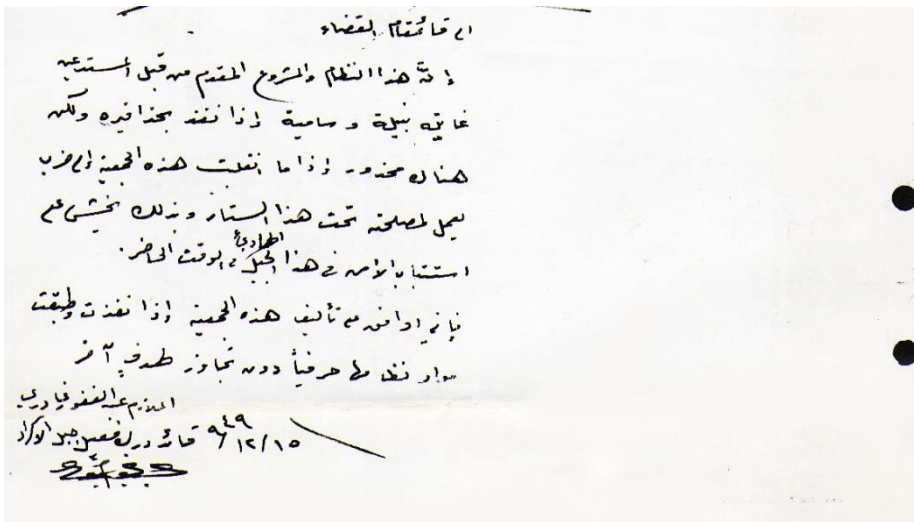 الى قائمقام القضاء
إن هذا النظام والمشروع المقدم من قبل المستدعين
غايته نبيلة وسامية إذا نفذ بحذافيره ولكن
هناك محذور إذا ما انقلبت هذه الجمعية إلى حزب
يعمل لمصلحته تحت هذا الستار وبذلك يخشى على
استتباب الأمن في هذا الجبل الهادئ في الوقت الحاضر.
فإني اوافق على تأليف هذه الجمعية إذا نفذت وطبقت
مواد نظامها حرفياً دون تجاوز لهدفٍ آخر
الملازم عبد الغفور قادري
٩٤٩/١٢/١٥ قائد درك فصيل جبل الأكراد